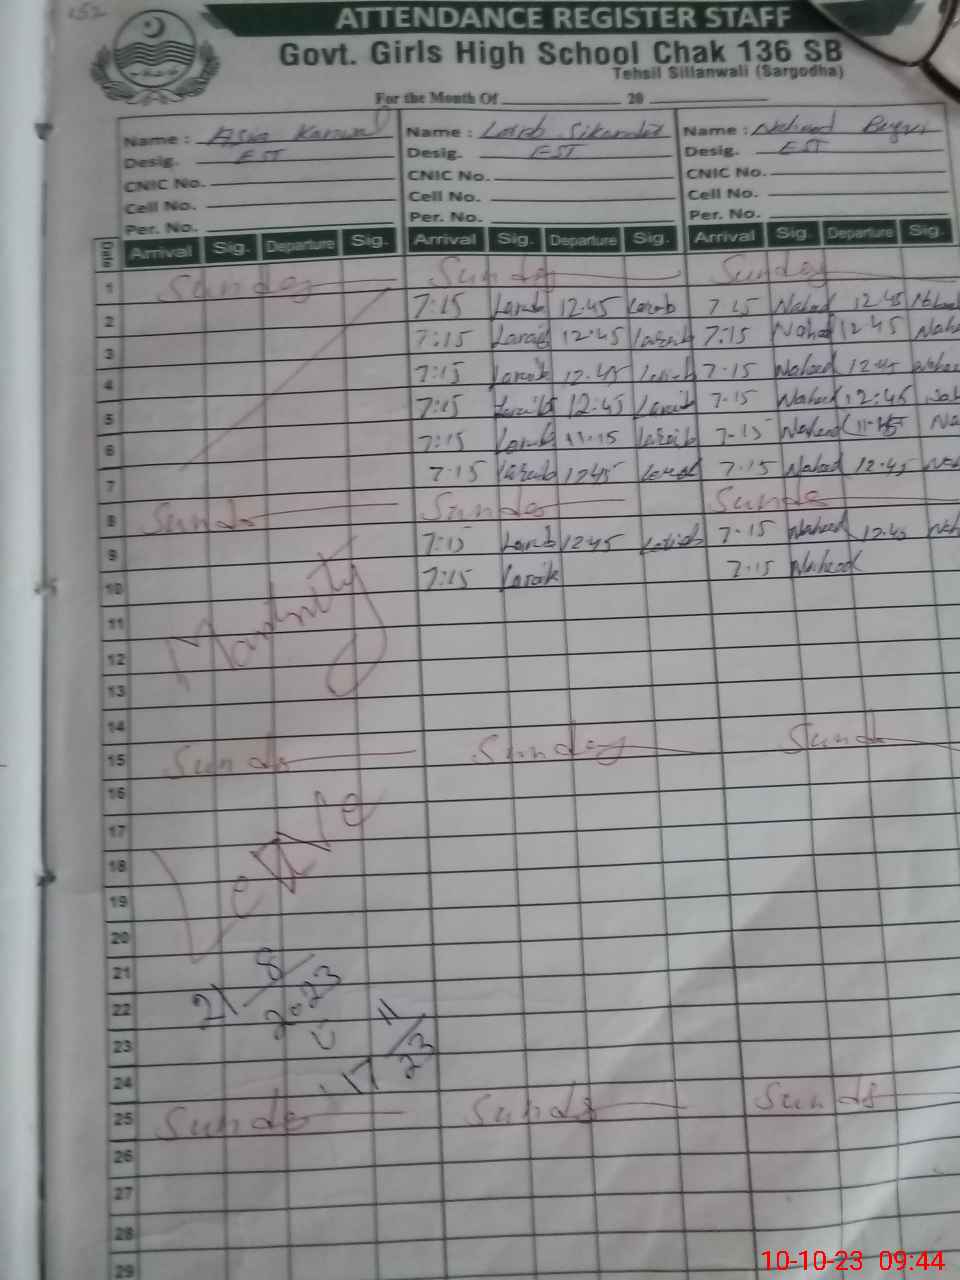 152
ATTENDANCE REGISTER STAFF
Govt. Girls High School Chak 136 SB
Tehsil Sillanwali (Sargodha)
For the Month Of 20
Name : Asia Name : Laraib Sikandar Name : Naheed
Desig. EST Desig. EST Desig. EST
CNIC No. CNIC No. CNIC No.
Cell No. Cell No. Cell No.
Per. No. Per. No. Per. No.
Date Arrival Sig. Departure Sig. Arrival Sig. Departure Sig. Arrival Sig. Departure Sig.
1 Sunday Sunday Sunday
2 7:15 Laraib 12.45 Laraib 7.15 Naheed 12.45
3 7:15 Laraib 12:45 Laraib 7:15 Naheed 12.45
4 7:15 Laraib 12.45 Laraib 7.15 Naheed 12.45
5 7:15 Laraib 12:45 Laraib 7.15 Naheed 12:45
6 7:15 Laraib 11.15 Laraib 7-15 Naheed
7 7:15 Laraib 1245 Laraib 7.15 Naheed 12.45
8 Sunda Sunday Sunda
9 7:15 Laraib 12:45 Laraib 7.15 Naheed 12.45
10 7:15 Laraib 7.15 Naheed
11
12
13
14
15 Sunda Sunday Sunda
16
17
18
19
20
21
22
23
24
25 Sunda Sunda Sunda
26
27
28
29
Leave
21/8/2023
17 11/23
10-10-23 09:44